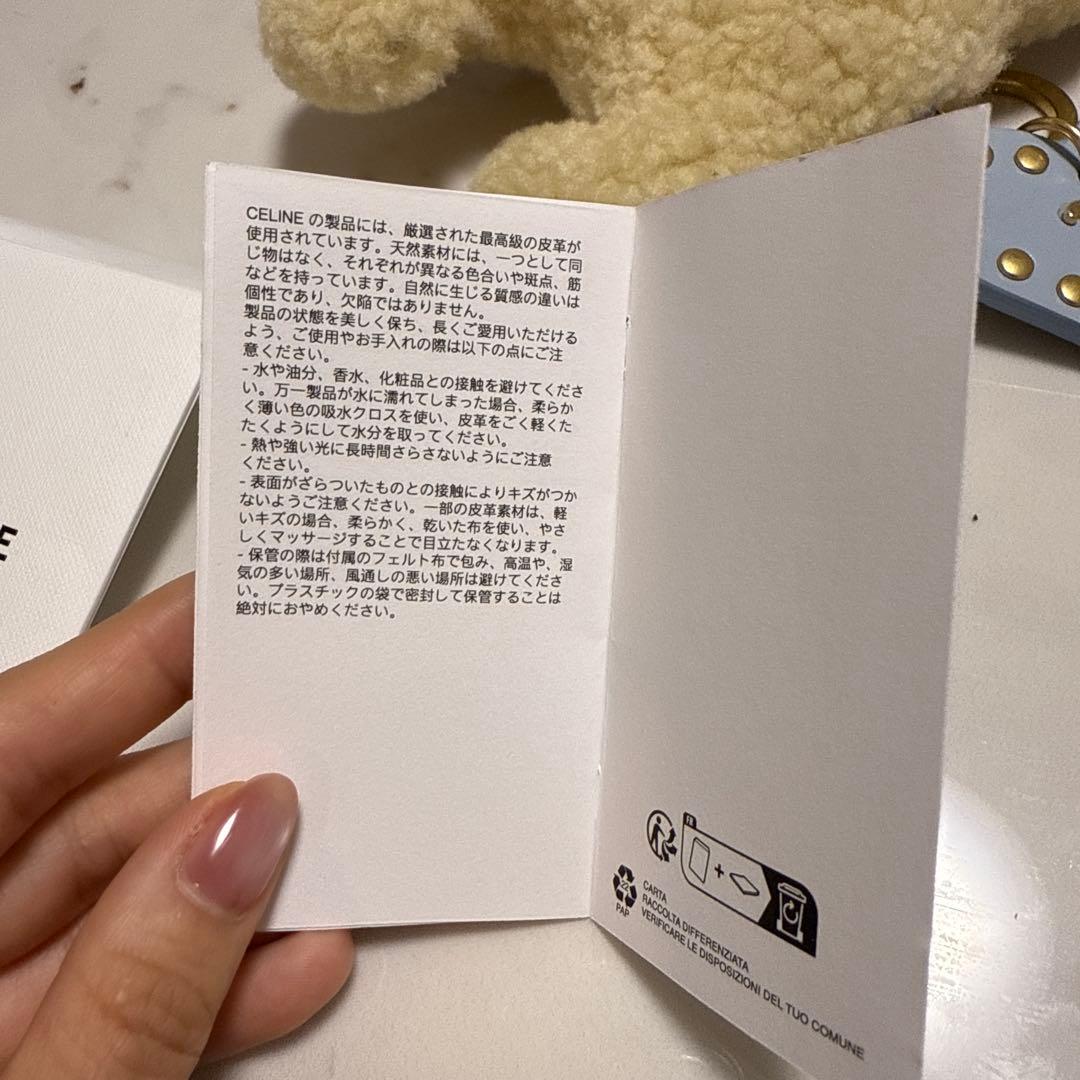 CELINE の製品には、厳選された最高級の皮革が
使用されています。天然素材には、一つとして同
じ物はなく、それぞれが異なる色合いや斑点、筋
などを持っています。自然に生じる質感の違いは
個性であり、欠陥ではありません。
製品の状態を美しく保ち、長くご愛用いただける
よう、ご使用やお手入れの際は以下の点にご注
意ください。
- 水や油分、香水、化粧品との接触を避けてくださ
い。万一製品が水に濡れてしまった場合、柔らか
く薄い色の吸水クロスを使い、皮革をごく軽くた
たくようにして水分を取ってください。
- 熱や強い光に長時間さらさないようにご注意
ください。
- 表面がざらついたものとの接触によりキズがつか
ないようご注意ください。一部の皮革素材は、軽
いキズの場合、柔らかく、乾いた布を使い、やさ
しくマッサージすることで目立たなくなります。
- 保管の際は付属のフェルト布で包み、高温や、湿
気の多い場所、風通しの悪い場所は避けてくださ
い。プラスチックの袋で密封して保管することは
絶対におやめください。
E
FR
+
22
PAP
CARTA
RACCOLTA DIFFERENZIATA
VERIFICARE LE DISPOSIZIONI DEL TUO COMUNE